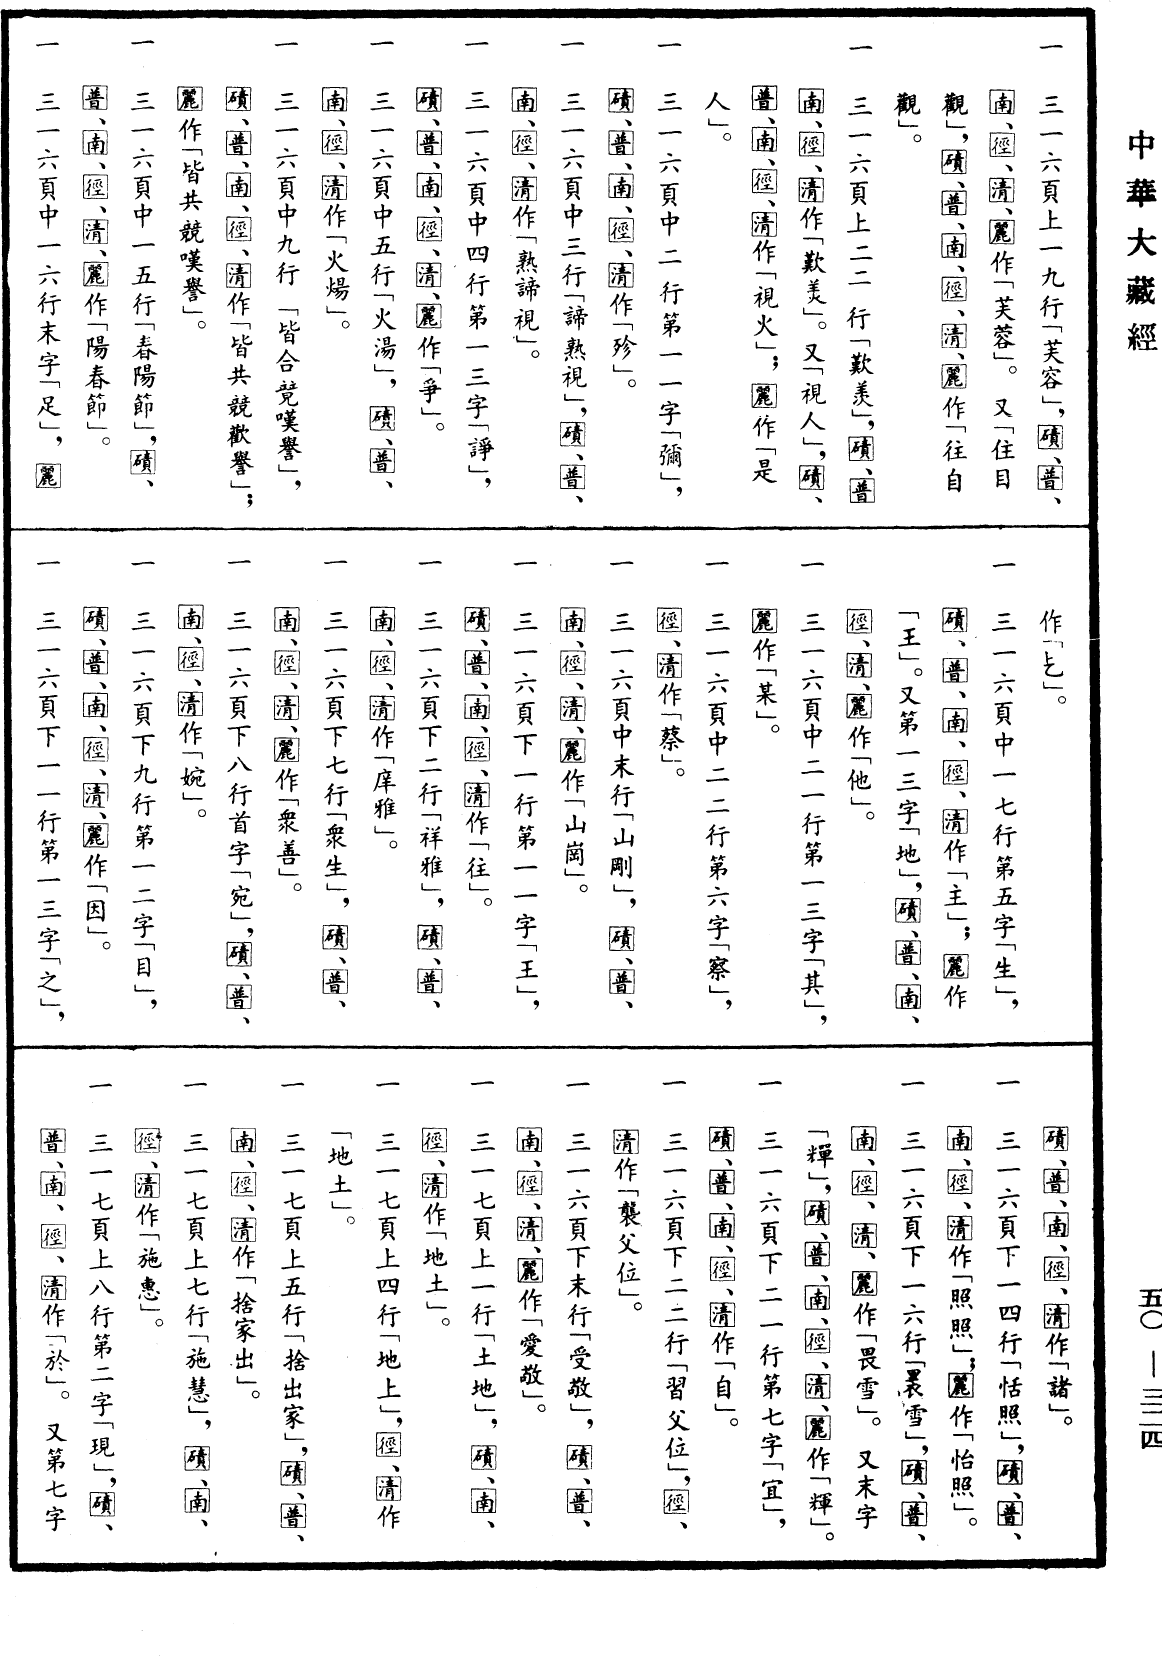 中華大藏經
五〇—三三四
一　三一六頁上一九行「芙容」，磧、普、
南、徑、清、麗作「芙蓉」。又「住目
觀」，磧、普、南、徑、清、麗作「往自
觀」。
一　三一六頁上二二行「歎羨」，磧、普
南、徑、清作「歎美」。又「視人」，磧、
普、南、徑、清作「視火」；麗作「是
人」。
一　三一六頁中二行第一一字「彌」，
磧、普、南、徑、清作「殄」。
一　三一六頁中三行「諦熟視」，磧、普、
南、徑、清作「熟諦視」。
一　三一六頁中四行第一三字「諍」，
磧、普、南、徑、清、麗作「爭」。
一　三一六頁中五行「火湯」，磧、普、
南、徑、清作「火煬」。
一　三一六頁中九行「皆合競嘆譽」，
磧、普、南、徑、清作「皆共競歡譽」；
麗作「皆共競嘆譽」。
一　三一六頁中一五行「春陽節」，磧、
普、南、徑、清、麗作「陽春節」。
一　三一六頁中一六行末字「足」，麗
作「乞」。
一　三一六頁中一七行第五字「生」，
磧、普、南、徑、清作「主」；麗作
「王」。又第一三字「地」，磧、普、南、
徑、清、麗作「他」。
一　三一六頁中二一行第一三字「其」，
麗作「某」。
一　三一六頁中二二行第六字「察」，
徑、清作「蔡」。
一　三一六頁中末行「山剛」，磧、普、
南、徑、清、麗作「山崗」。
一　三一六頁下一行第一一字「王」，
磧、普、南、徑、清作「往」。
一　三一六頁下二行「祥雅」，磧、普、
南、徑、清作「庠雅」。
一　三一六頁下七行「衆生」，磧、普、
南、徑、清、麗作「衆善」。
一　三一六頁下八行首字「宛」，磧、普、
南、徑、清作「婉」。
一　三一六頁下九行第一二字「目」，
磧、普、南、徑、清、麗作「因」。
一　三一六頁下一一行第一三字「之」，
磧、普、南、徑、清作「諸」。
一　三一六頁下一四行「恬照」，磧、普、
南、徑、清作「照照」；麗作「怡照」。
一　三一六頁下一六行「裹雪」，磧、普、
南、徑、清、麗作「畏雪」。又末字
「糶」，磧、普、南、徑、清、麗作「輝」。
一　三一六頁下二一行第七字「宜」，
磧、普、南、徑、清作「自」。
一　三一六頁下二二行「習父位」，徑、
清作「襲父位」。
一　三一六頁下末行「受敬」，磧、普、
南、徑、清、麗作「愛敬」。
一　三一七頁上一行「土地」，磧、南、
徑、清作「地土」。
一　三一七頁上四行「地上」，徑、清作
「地土」。
一　三一七頁上五行「捨出家」，磧、普、
南、徑、清作「捨家出」。
一　三一七頁上七行「施慧」，磧、南、
徑、清作「施惠」。
一　三一七頁上八行第二字「現」，磧、
普、南、徑、清作「於」。又第七字